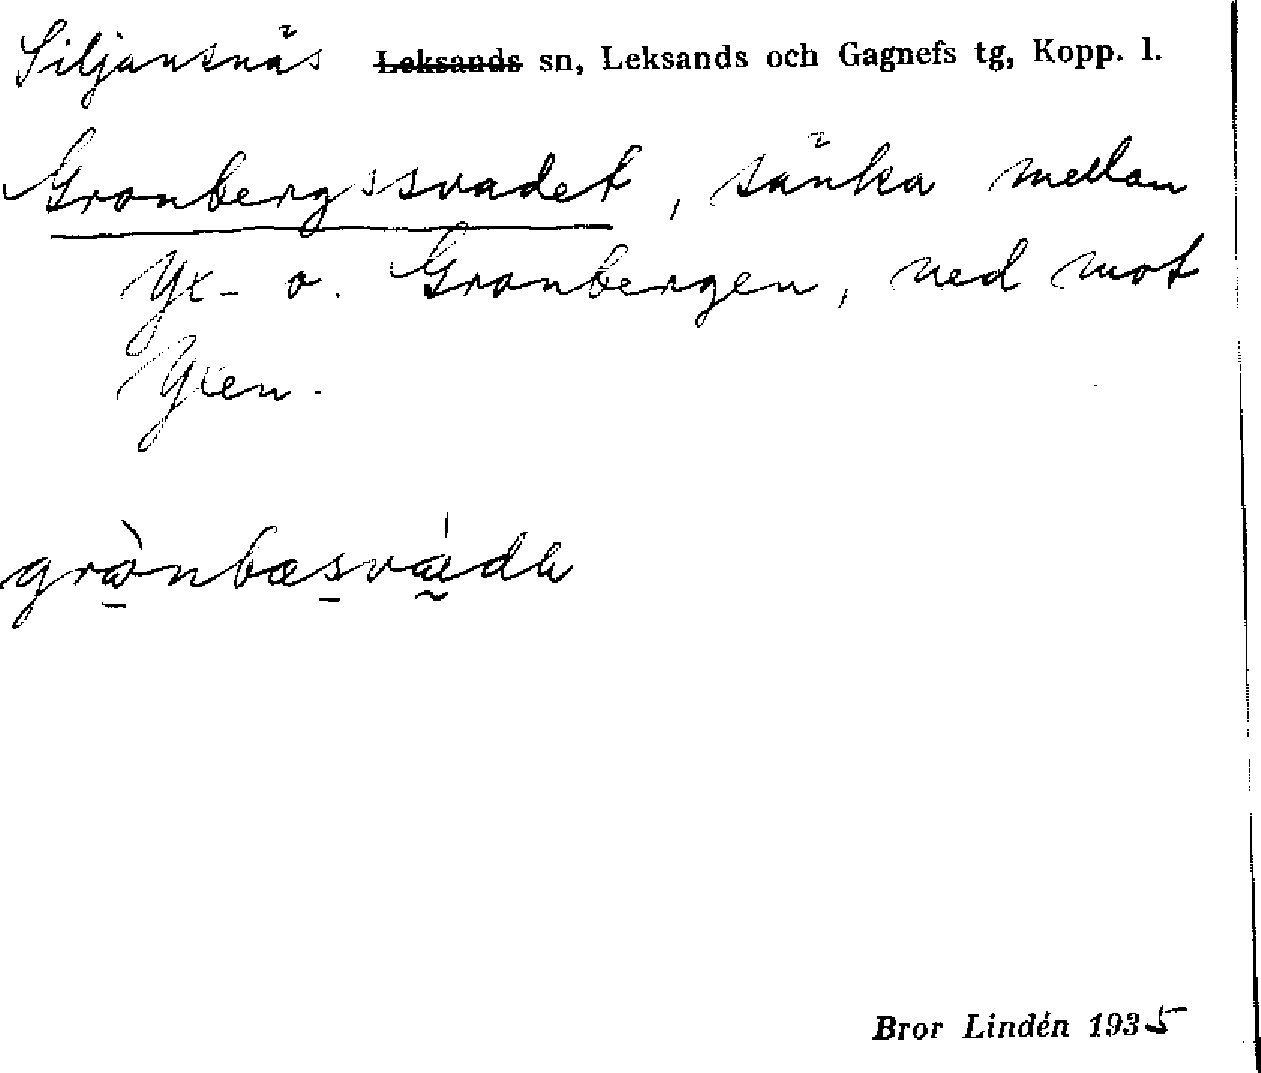 Siljansnäs Leksands sn, Leksands och Gagnefs tg, Kopp. l.
Gronbergssvadet, sänka mellan
Yx- o. Gronbergen, ned mot
Yxen.
Bror Lindén 1935